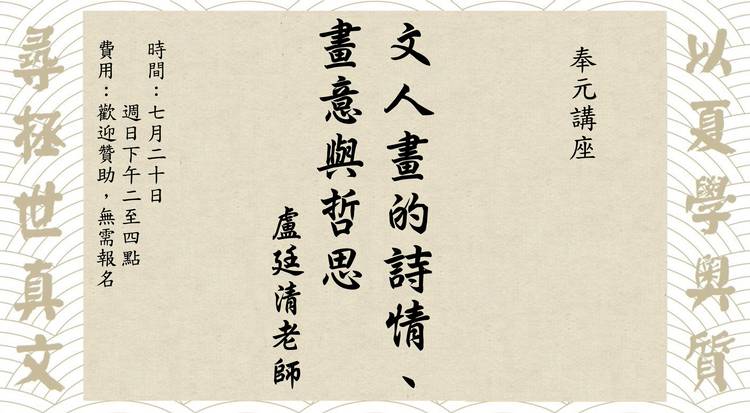 以夏學奧質
奉元講座
文人畫的詩情、
畫意與哲思
盧廷清老師
時間：七月二十日
週日下午二至四點
費用：歡迎贊助，無需報名
尋拯世真文